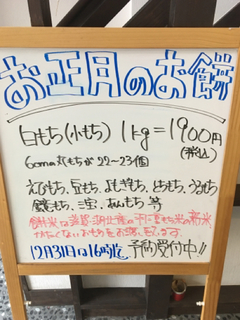 お正月のお餅
白もち(小もち) 1kg=1900円
(税込)
60mm丸もちが22~23個
えびもち、豆もち、よもぎもち、とちもち、うるもち
鏡もち、三宝、あんもち 等
餅米は滋賀湖北産の 羽二重もち米の新米
かたくないおもちをお渡しします
12月31日は16時迄 予約受付中!!